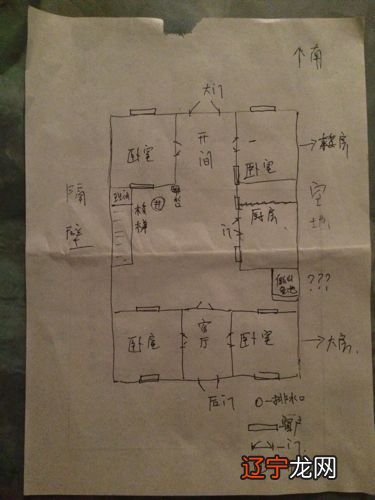 个南
大门
卧室
开间
卧室
楼房
隔壁
空地
楼梯
井
厨房
门
???
卧室
客厅
卧室
大房
后门
O—排水口
窗户
门
辽宁龙网